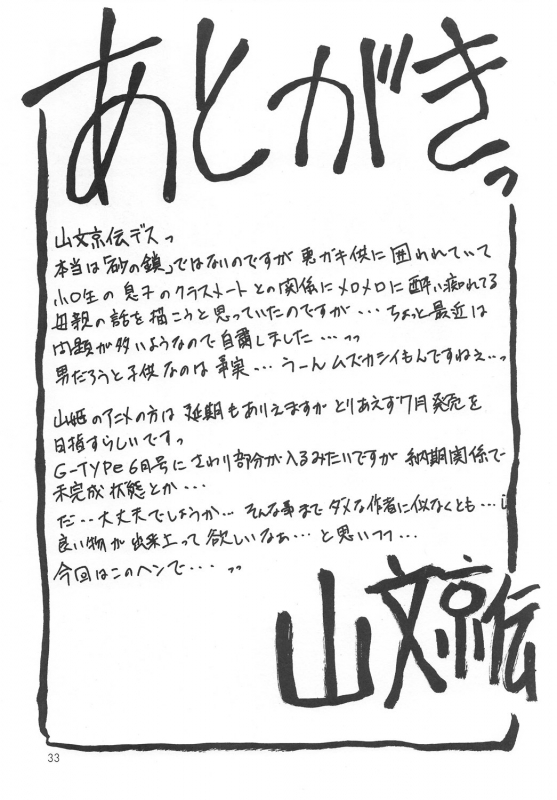 あとがきっ
山文京伝デスっ
本当は「砂の鎖」ではないのですが 悪ガキ供に囲われていて
小○生の息子のクラスメートとの関係にメロメロに酔い痴れてる
母親の話を描こうと思っていたのですが・・・ちょっと最近は
問題が多いようなので自粛しました・・・っっ
男だろうと子供なのは事実・・・うーんムズカシイもんですねぇ・・っ
山姫のアニメの方は延期もありえますが とりあえず7月発売を
目指すらしいですっ
G-TYPe 6月号にさわり部分が入るみたいですが 納期関係で
未完成状態とか・・・
だ・・大丈夫でしょうか・・・そんな事までダメな作者に似なくとも・・・
良い物が出来上って欲しいなぁ・・・と思いつつ・・・
今回はこのヘンで・・・っっ
山文京伝
33